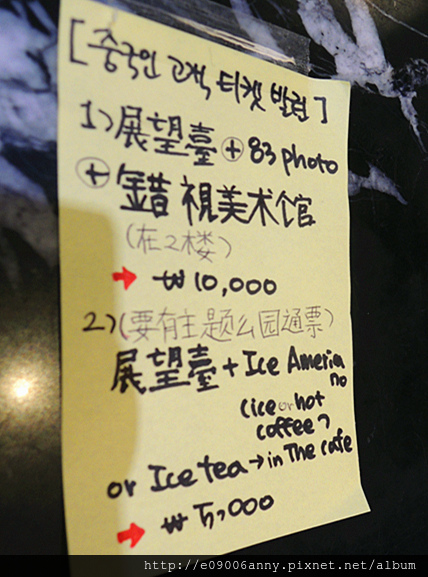 [중국인 고객 티켓 발권]
1) 展望臺 ⊕ 83 photo
⊕ 错視美术馆
(在2楼)
→ ₩10,000
2) (要有主题公园通票)
展望臺 + Ice Ameria
no
(ice or hot
coffee)
or Ice tea → in The cafe
→ ₩5,000
http://e09006anny.pixnet.net/album